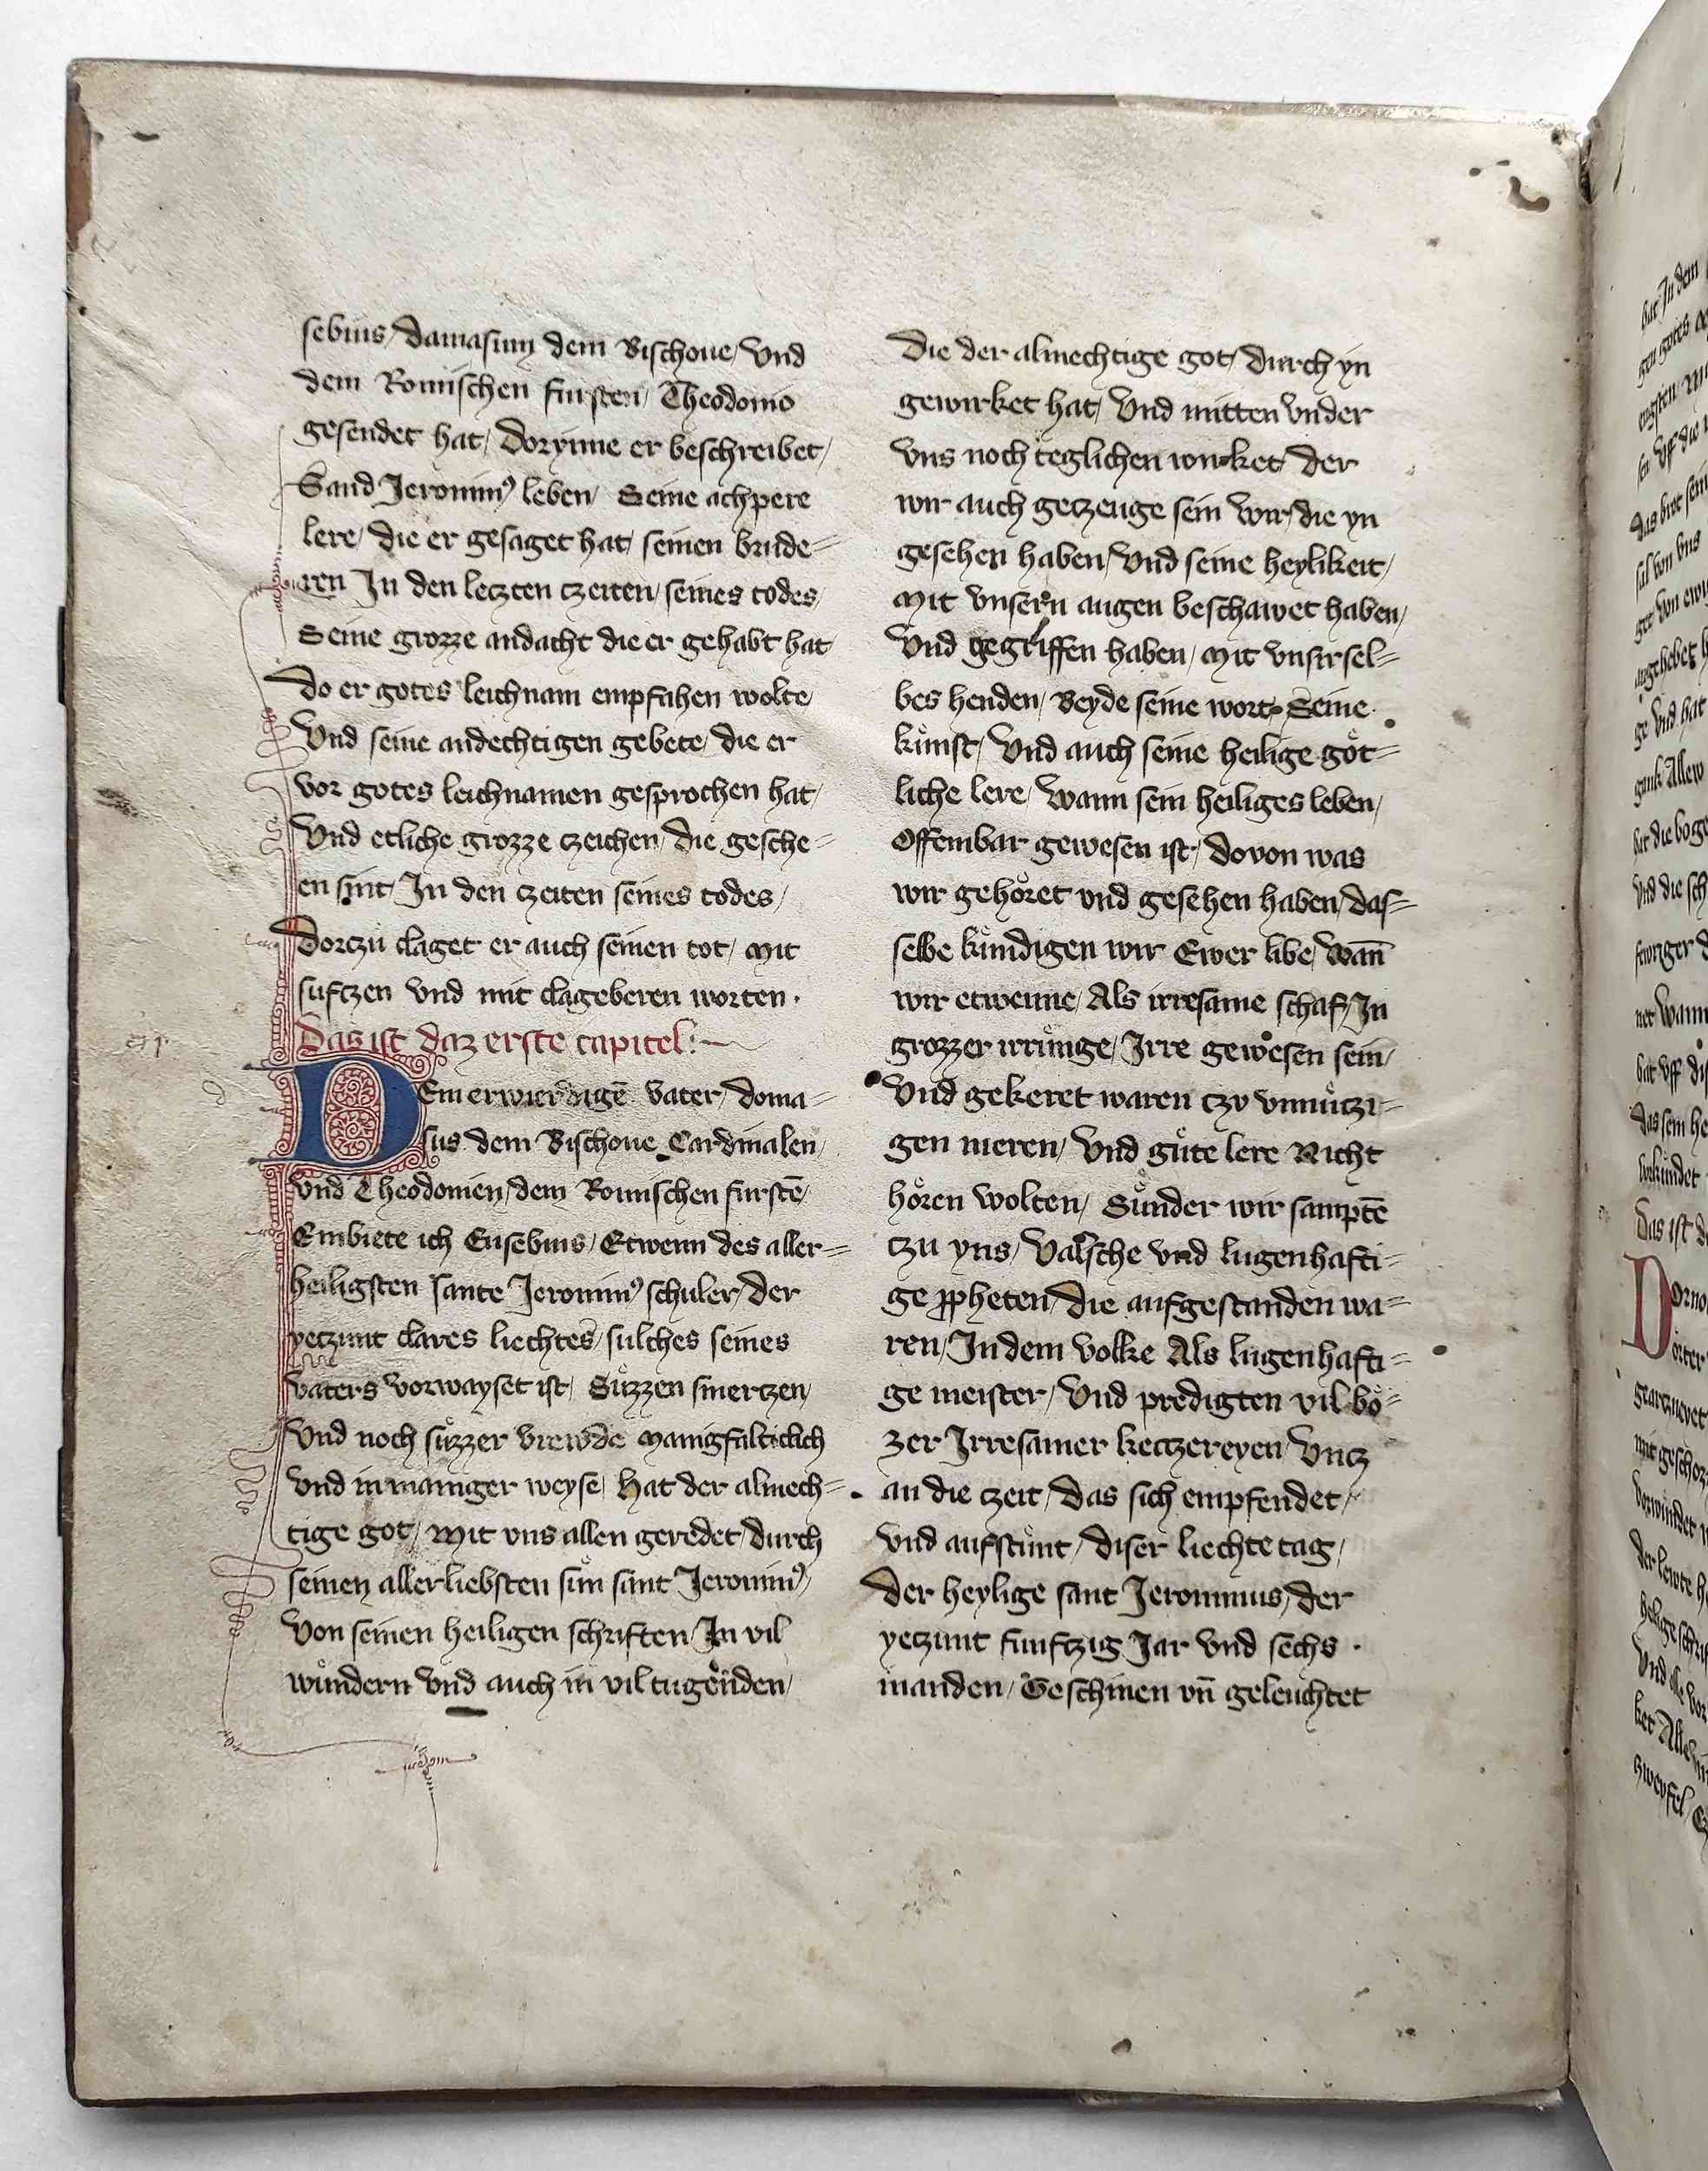 sebius / damasum dem Bischoue / Vnd
dem Romischen fursten / Theodonio
gesendet hat / Dorynne er beschreibet /
Sand Jeronimꝰ leben / Seine achpere
lere / die er gesaget hat / seinen brude=
ren In den letzten czeiten / seines todes /
Seine grozze andacht die er gehabt hat
Do er gotes leichnam empfahen wolte /
Vnd seine andechtigen gebete / die er
vor gotes leichnamen gesprochen hat /
Vnd etliche grozze czeichen / die gesche=
en sint / In den czeiten seines todes /
Dorczu claget er auch seinen tot / Mit
sufczen vnd mit clageberen worten .
Das ist daz erste capitel :~
DEm erwirdigē vater / doma=
sus dem Bischoue Cardinalen /
vnd Theodonien / dem Romischen furstē /
Embiete ich Eusebius / Etwenn des aller=
heiligsten sante Jeronimꝰ schuler / der
yeczunt clares liechtes / sulches seines
vaters vorwayset ist / Sůzzen smerczen /
Vnd noch sůzzer vrewde Manigfalticlich
vnd in maniger weyse / hat der almech=
tige got / Mit vns allen geredet / durch
seinen allerliebsten sůn sant Jeronimꝰ /
Von seinen heiligen schriften / In vil
wůndern vnd auch in vil tugenden /
die der almechtige got / durch yn
gewirket hat / Vnd mitten vnder
vns noch teglichen wirket / der
wir auch geczeuge sein wir / die yn
gesehen haben / Vnd seine heylikeit /
Mit vnsern augen beschawet haben /
Vnd gegriffen haben / Mit vnsir sel=
bes henden / Beyde seine wort / Seine
kůnst / Vnd auch seine heilige göt=
liche lere / Wann sein heiliges leben /
Offembar gewesen ist / Dovon was
wir gehöret vnd gesehen haben / das=
selbe kůndigen wir Ewer libe / Wan̄
wir etwenne / Als irresame schaf / In
grozzer irrůnge / Irre gewesen sein /
Vnd gekeret waren czv vnnůczi=
gen meren / Vnd gůte lere Nicht
hören wolten / Sůnder wir samptē
czu yns / Valsche vnd lugenhafti=
ge ꝓpheten / Die aufgestanden wa=
ren / In dem volke Als lugenhafti=
ge meister / Vnd predigten vil bö=
zer Irresamer keczereyen / Vncz
an die czeit / Das sich empfendet /
vnd aufstůnt / diser liechte tag /
Der heylige sant Jeronimus / der
yeczunt funfczig Jar vnd sechs .
manden / Geschinen vn̄ geleuchtet